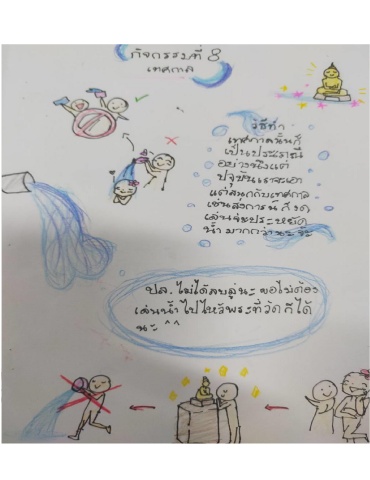 กิจกรรมที่ 8
เทศกาล
วิธีทำ
เทศกาลนั้นก็
เป็นประเพณี
อย่างนึงแต่
ปัจุบันเราจะเอา
แต่สนุกกับเทศกาล
เช่นสงการณ์ ก็งด
เล่นจะประหยัด
น้ำ มากกว่านะจ๊ะ
ปล. ไม่ได้ลบลู่นะ พอไม่ต้อง
เล่นน้ำไปไหว้พระที่วัดก็ได้
นะ ^^